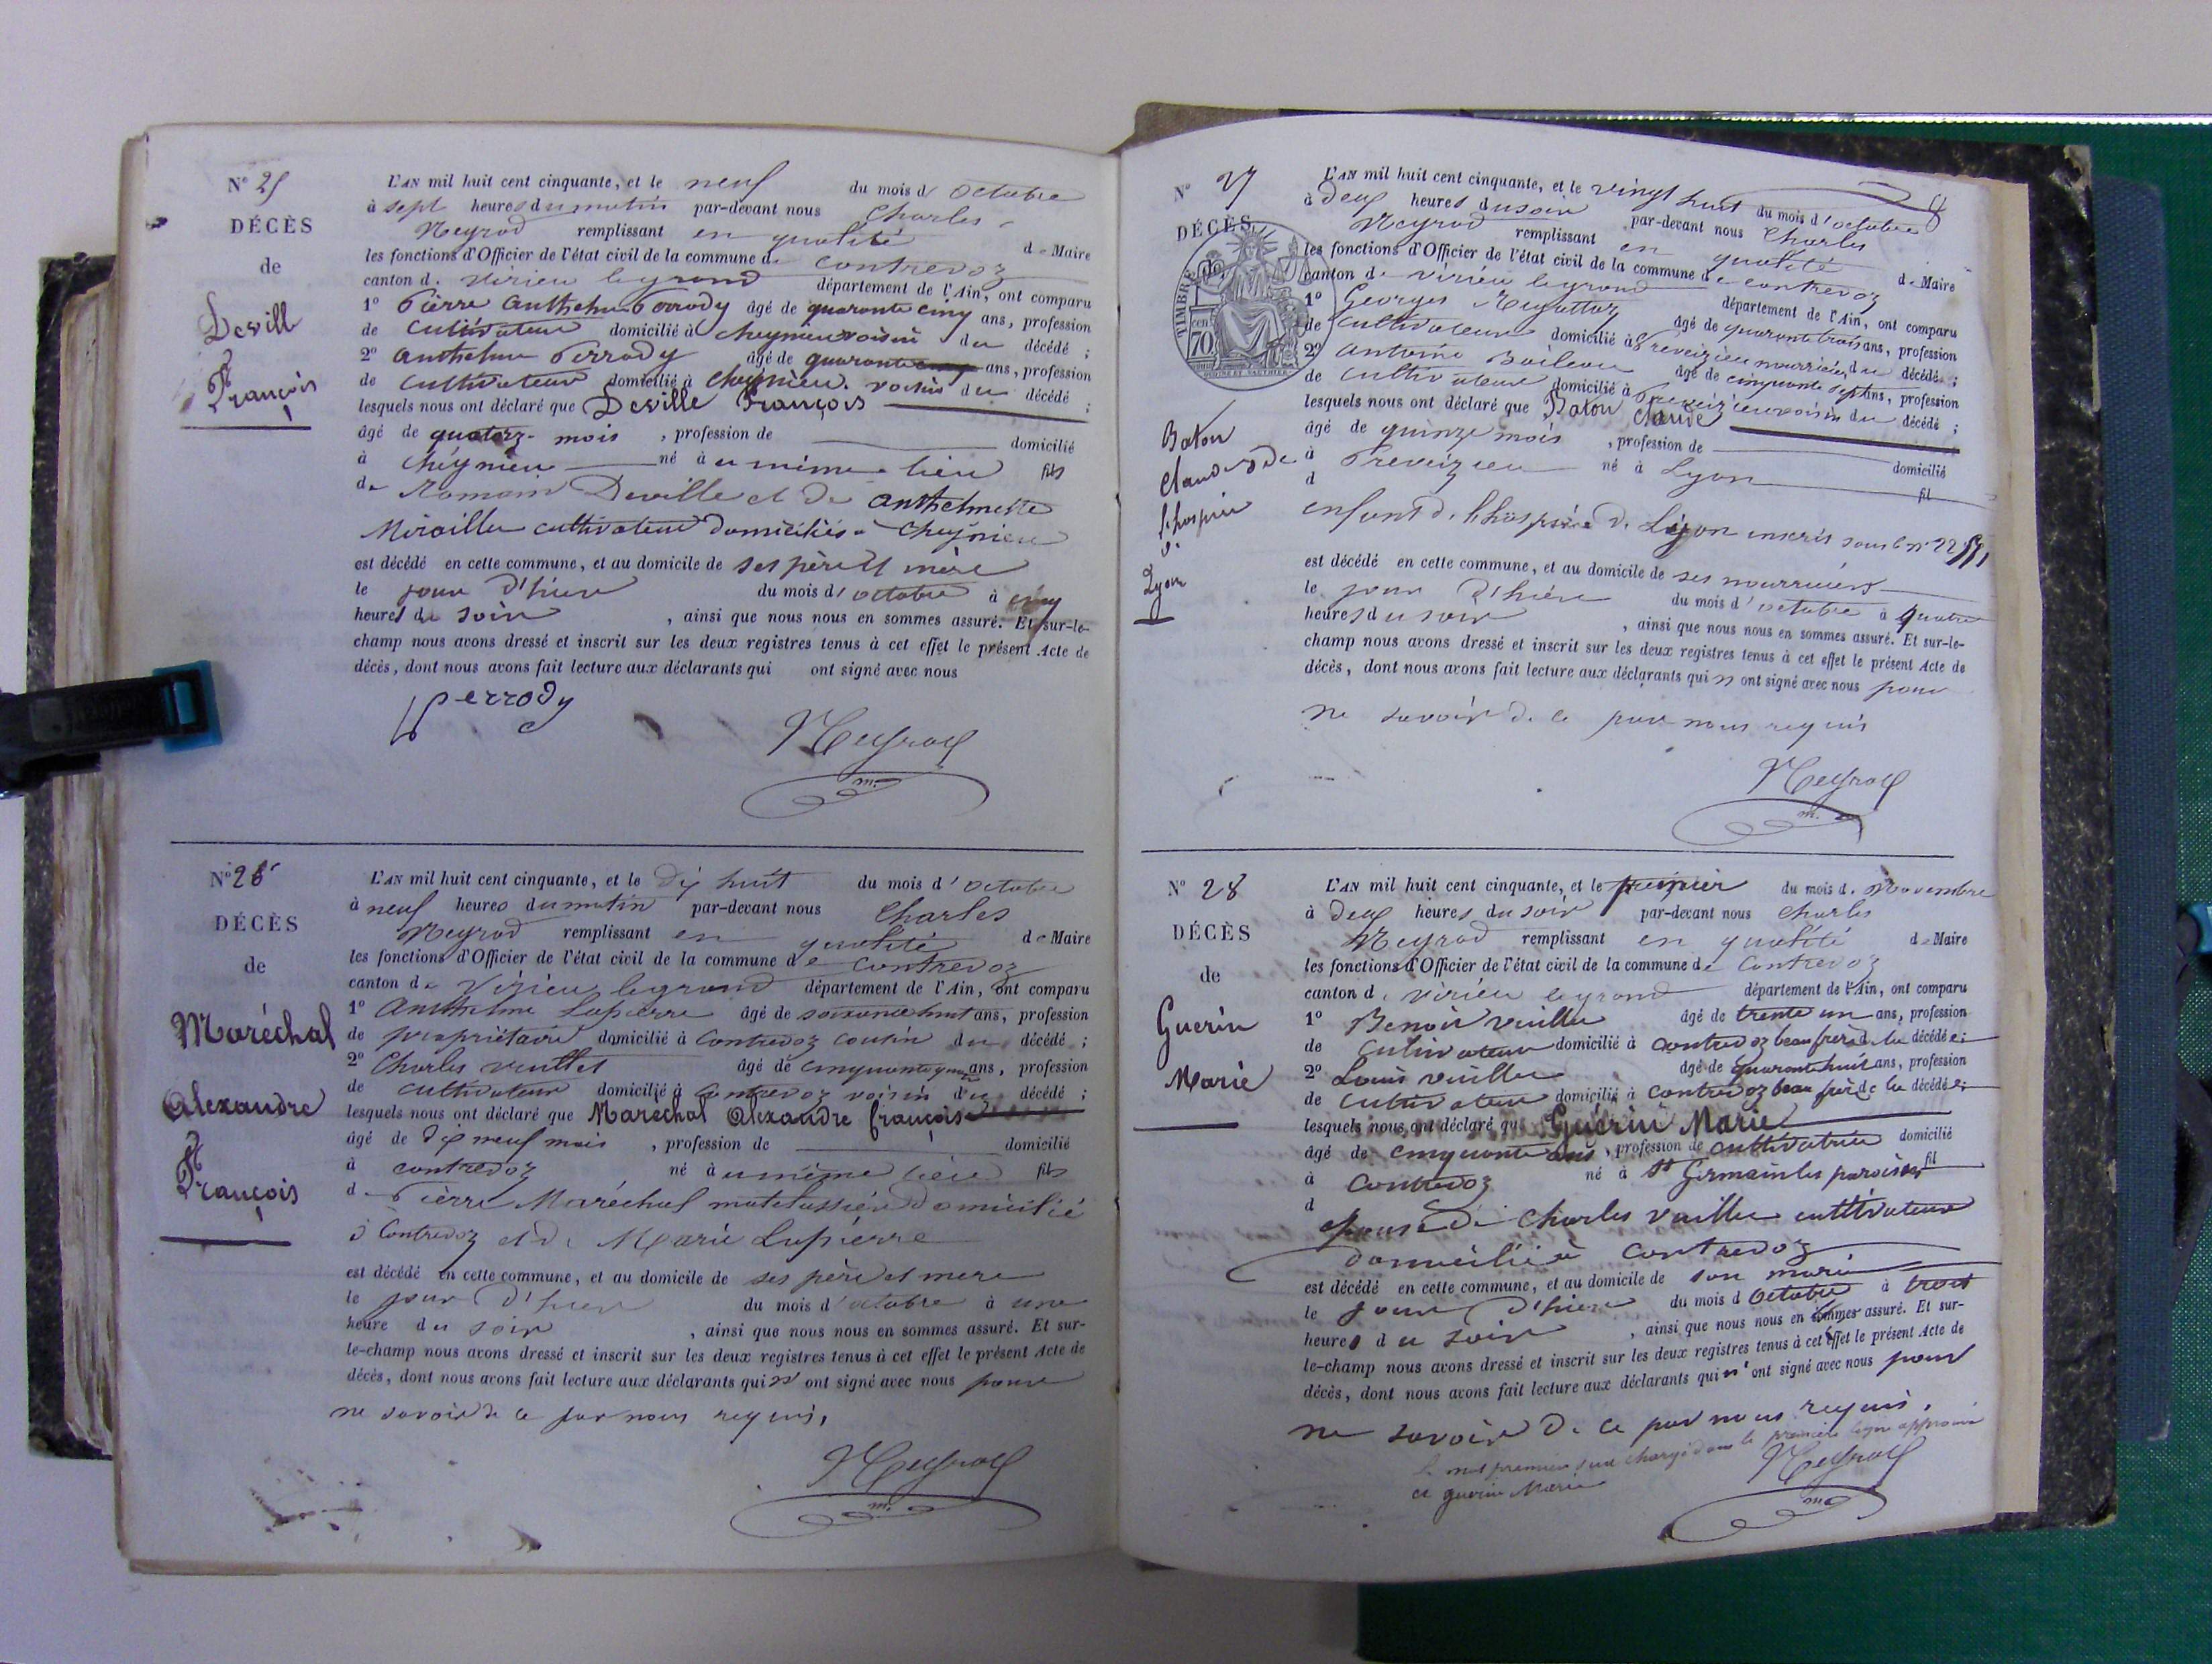 N° 25
DÉCÈS
de
Deville
François
L'AN mil huit cent cinquante, et le neuf du mois d'octobre
à sept heures du matin par-devant nous Charles
Meyrod remplissant en qualité de Maire
les fonctions d'Officier de l'état civil de la commune de contrevoz
canton de virieu legrand département de l'Ain, ont comparu
1° Pierre Anthelme Perrody âgé de quarante cinq ans, profession
de cultivateur domicilié à cheynieu voisin du décédé ;
2° anthelme Perrody âgé de quarante ans, profession
de cultivateur domicilié à cheynieu voisin du décédé ;
lesquels nous ont déclaré que Deville François
âgé de quatorze mois , profession de domicilié
à cheynieu né à u même lieu fils
de Romain Deville et de anthelmette
Miraillu cultivateur domiciliés à Cheynieu
est décédé en cette commune, et au domicile de ses père et mère
le jour d'hier du mois d'octobre à cinq
heures du soir , ainsi que nous nous en sommes assuré. Et sur-le-
champ nous avons dressé et inscrit sur les deux registres tenus à cet effet le présent Acte de
décès, dont nous avons fait lecture aux déclarants qui ont signé avec nous
perrody
Meyrod
m.
N° 26
DÉCÈS
de
Maréchal
Alexandre
François
L'AN mil huit cent cinquante, et le dix huit du mois d'octobre
à neuf heures du matin par-devant nous Charles
Meyrod remplissant en qualité de Maire
les fonctions d'Officier de l'état civil de la commune de contrevoz
canton de Virieu legrand département de l'Ain, ont comparu
1° Anthelme Lapierre âgé de soixante huit ans, profession
de propriétaire domicilié à Contrevoz cousin du décédé ;
2° Charles vuillet âgé de cinquante ans, profession
de cultivateur domicilié à Contrevoz voisin du décédé ;
lesquels nous ont déclaré que Maréchal Alexandre françois
âgé de dix neuf mois , profession de domicilié
à contrevoz né à u même lieu fils
de Pierre Maréchal matelassier domicilié
à Contrevoz et de Marie Lapierre
est décédé en cette commune, et au domicile de ses père et mere
le jour d'hier du mois d'octobre à une
heure du soir , ainsi que nous nous en sommes assuré. Et sur-
le-champ nous avons dressé et inscrit sur les deux registres tenus à cet effet le présent Acte de
décès, dont nous avons fait lecture aux déclarants qui n' ont signé avec nous pour
ne savoir de ce par nous requis,
Meyrod
m.
N° 27
DÉCÈS
TIMBRE
70
cen
Baton
Claude de
l'hospice
de
Lyon
L'AN mil huit cent cinquante, et le vingt huit du mois d'octobre
à deux heures du soir par-devant nous Charles
Meyrod remplissant en qualité de Maire
les fonctions d'Officier de l'état civil de la commune de contrevoz
canton de virieu legrand département de l'Ain, ont comparu
1° Georges âgé de quarante trois ans, profession
de cultivateur domicilié à Preveizieu nourricier du décédé ;
2° Antoine Boileau âgé de cinquante sept ans, profession
de cultivateur domicilié à Preveizieu voisin du décédé ;
lesquels nous ont déclaré que Baton Claude
âgé de quinze mois , profession de domicilié
à Preveizieu né à Lyon fil
d
enfant de l'hospice de Lyon inscrit sous le n°
est décédé en cette commune, et au domicile de ses nourriciers
le jour d'hier du mois d'octobre à quatre
heures du soir , ainsi que nous nous en sommes assuré. Et sur-le-
champ nous avons dressé et inscrit sur les deux registres tenus à cet effet le présent Acte de
décès, dont nous avons fait lecture aux déclarants qui n ont signé avec nous pour
ne savoir de ce par nous requis
Meyrod
m.
N° 28
DÉCÈS
de
Guerin
Marie
L'AN mil huit cent cinquante, et le premier du mois de Novembre
à deux heures du soir par-devant nous Charles
Meyrod remplissant en qualité de Maire
les fonctions d'Officier de l'état civil de la commune de Contrevoz
canton de virieu legrand département de l'Ain, ont comparu
1° Benoit vuillet âgé de trente un ans, profession
de cultivateur domicilié à contrevoz beau frère de la décédée ;
2° Louis vuillet âgé de quarante huit ans, profession
de cultivateur domicilié à contrevoz beau frère de la décédée ;
lesquels nous ont déclaré que Guérin Marie
âgé de cinquante ans , profession de cultivatrice domicilié
à Contrevoz né à St Germain les paroisses fil
d
épouse de Charles vuillet cultivateur
domicilié à Contrevoz
est décédé en cette commune, et au domicile de son mari
le jour d'hier du mois d'Octobre à trois
heures du soir , ainsi que nous nous en sommes assuré. Et sur-
le-champ nous avons dressé et inscrit sur les deux registres tenus à cet effet le présent Acte de
décès, dont nous avons fait lecture aux déclarants qui n' ont signé avec nous pour
ne savoir de ce par nous requis.
le mot premier surchargé dans la première ligne approuvé
et guerin Marie
Meyrod
m.